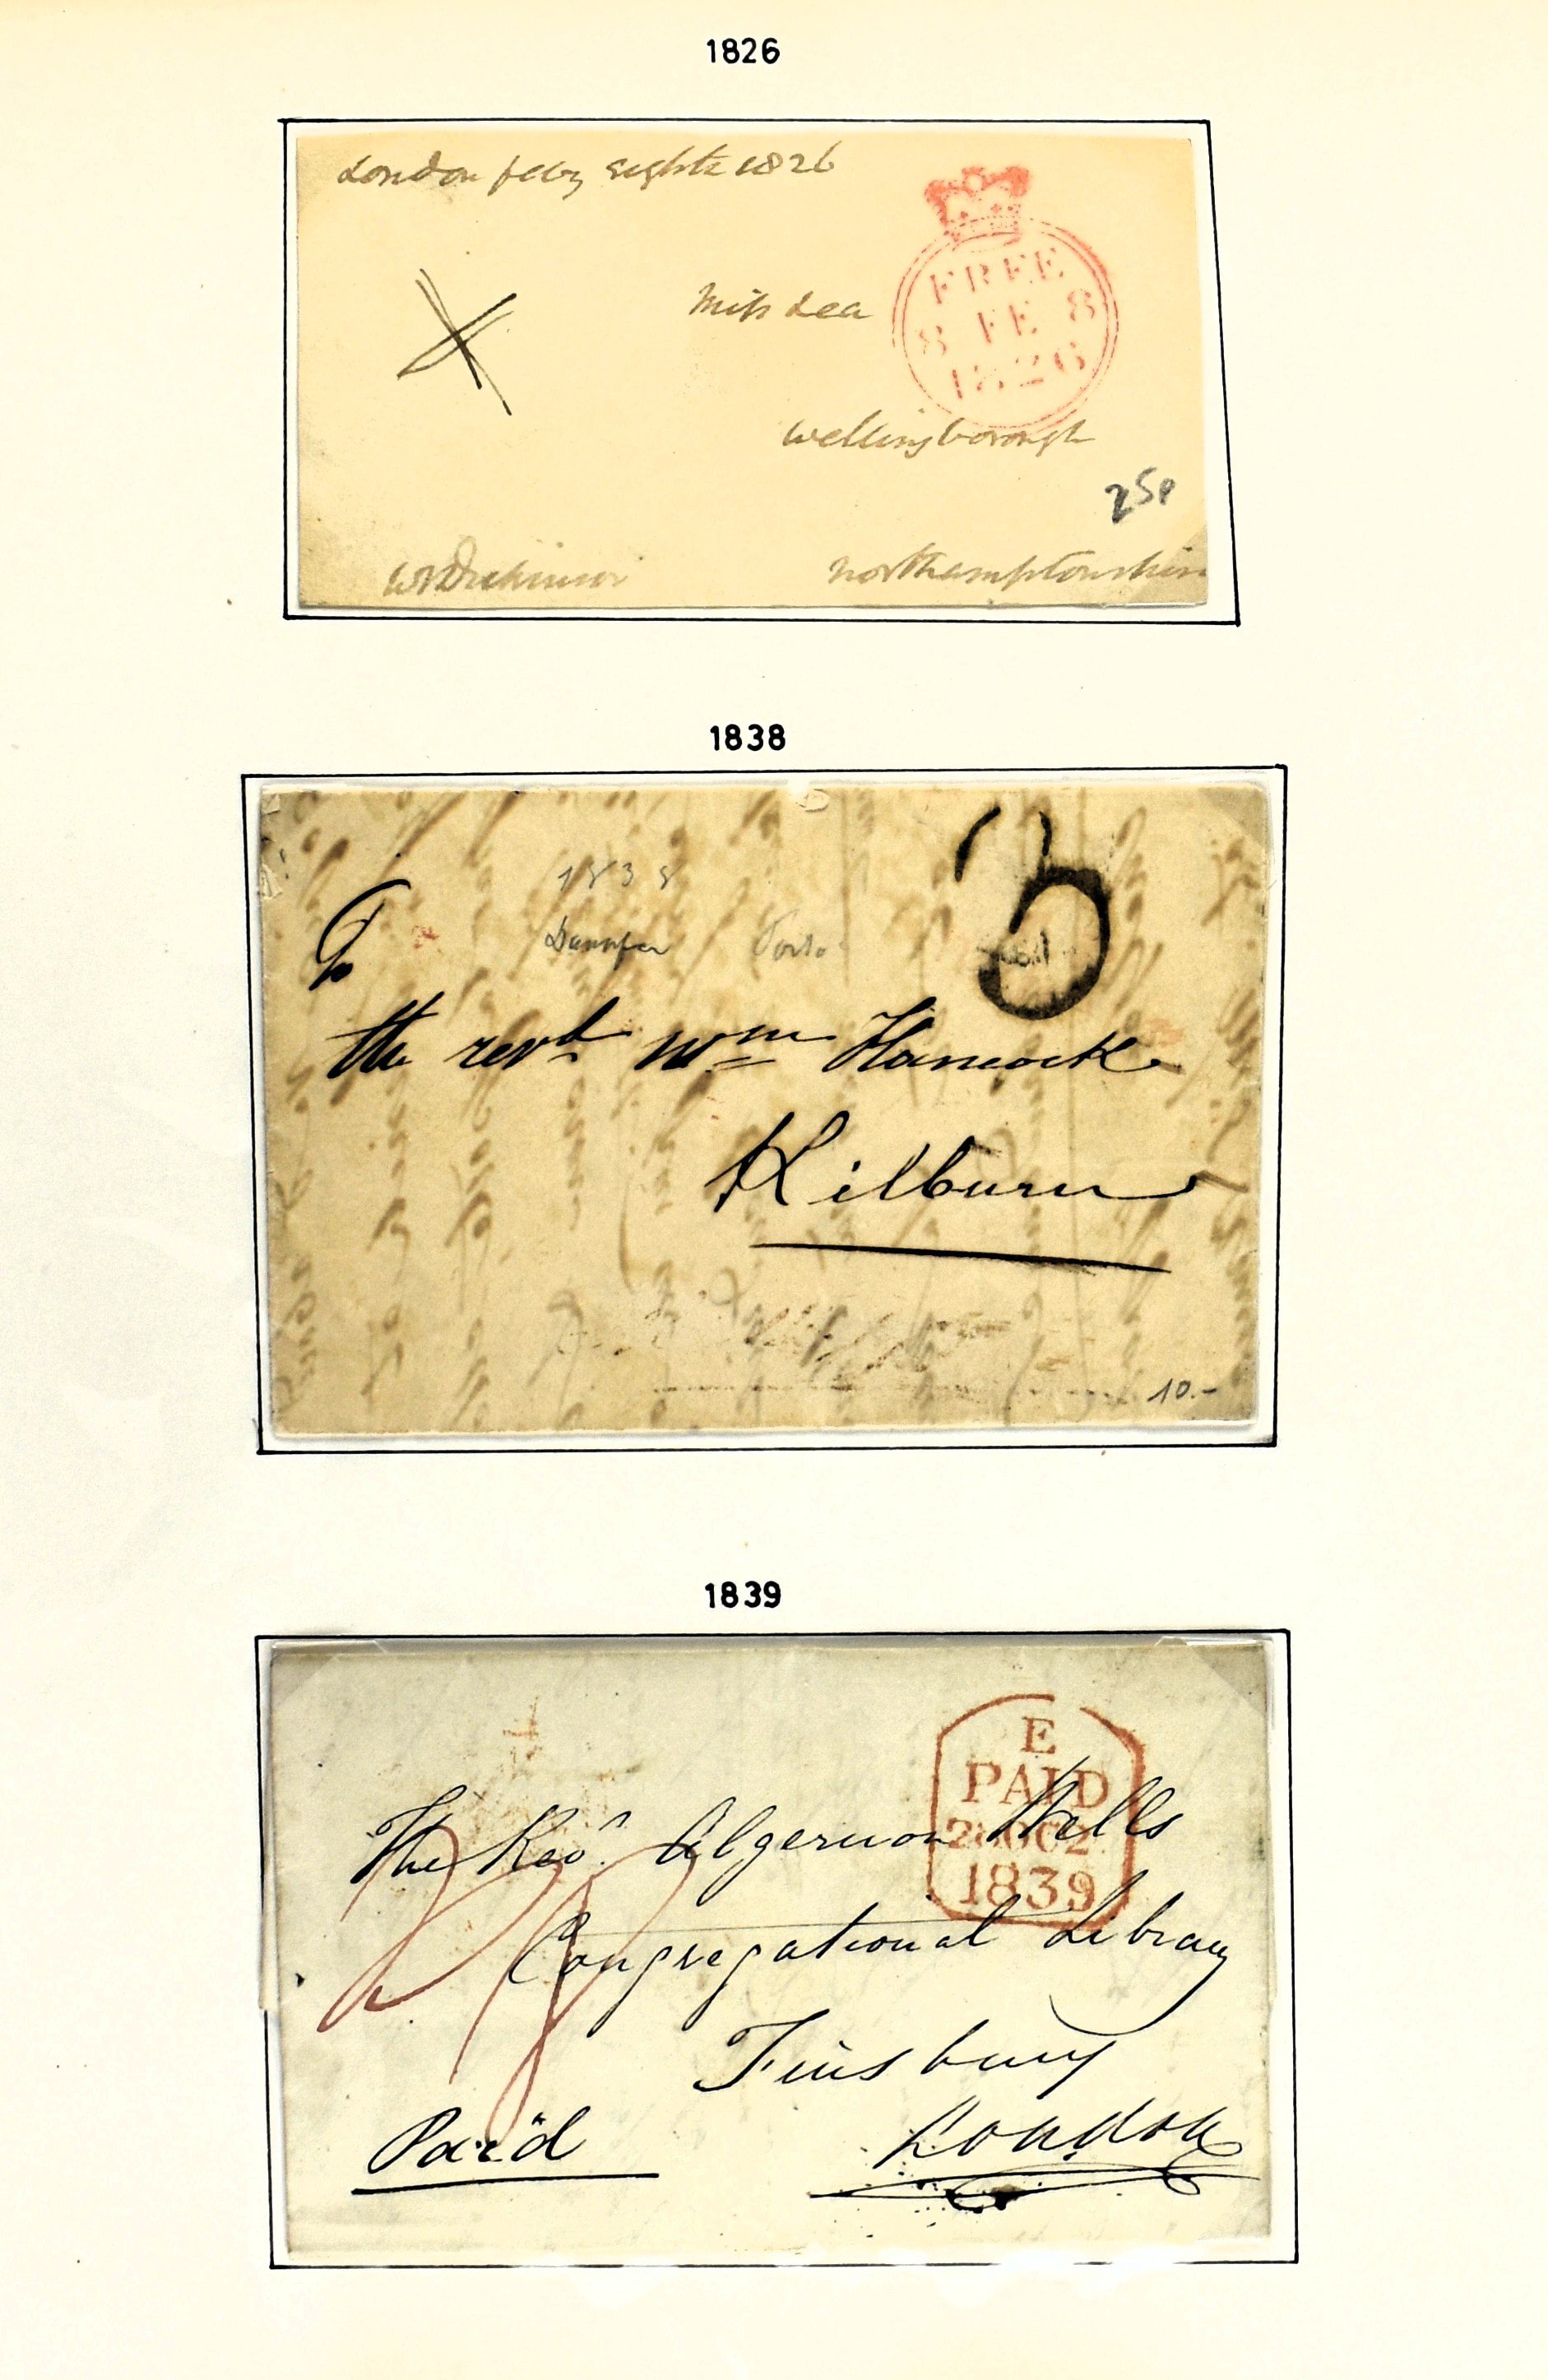 1826
London feby eighth 1826
FREE
8 FE 8
1826
Miss Lea
Wellingborough
25p
Northamptonshire
W Dickinson
1838
1838
Porto
To
the revd Wm Hancock
Kilburn
10.-
1839
E
PAID
28 OC 28
1839
The Revd. Algernon Wells
Congregational Library
Finsbury
London
Paid